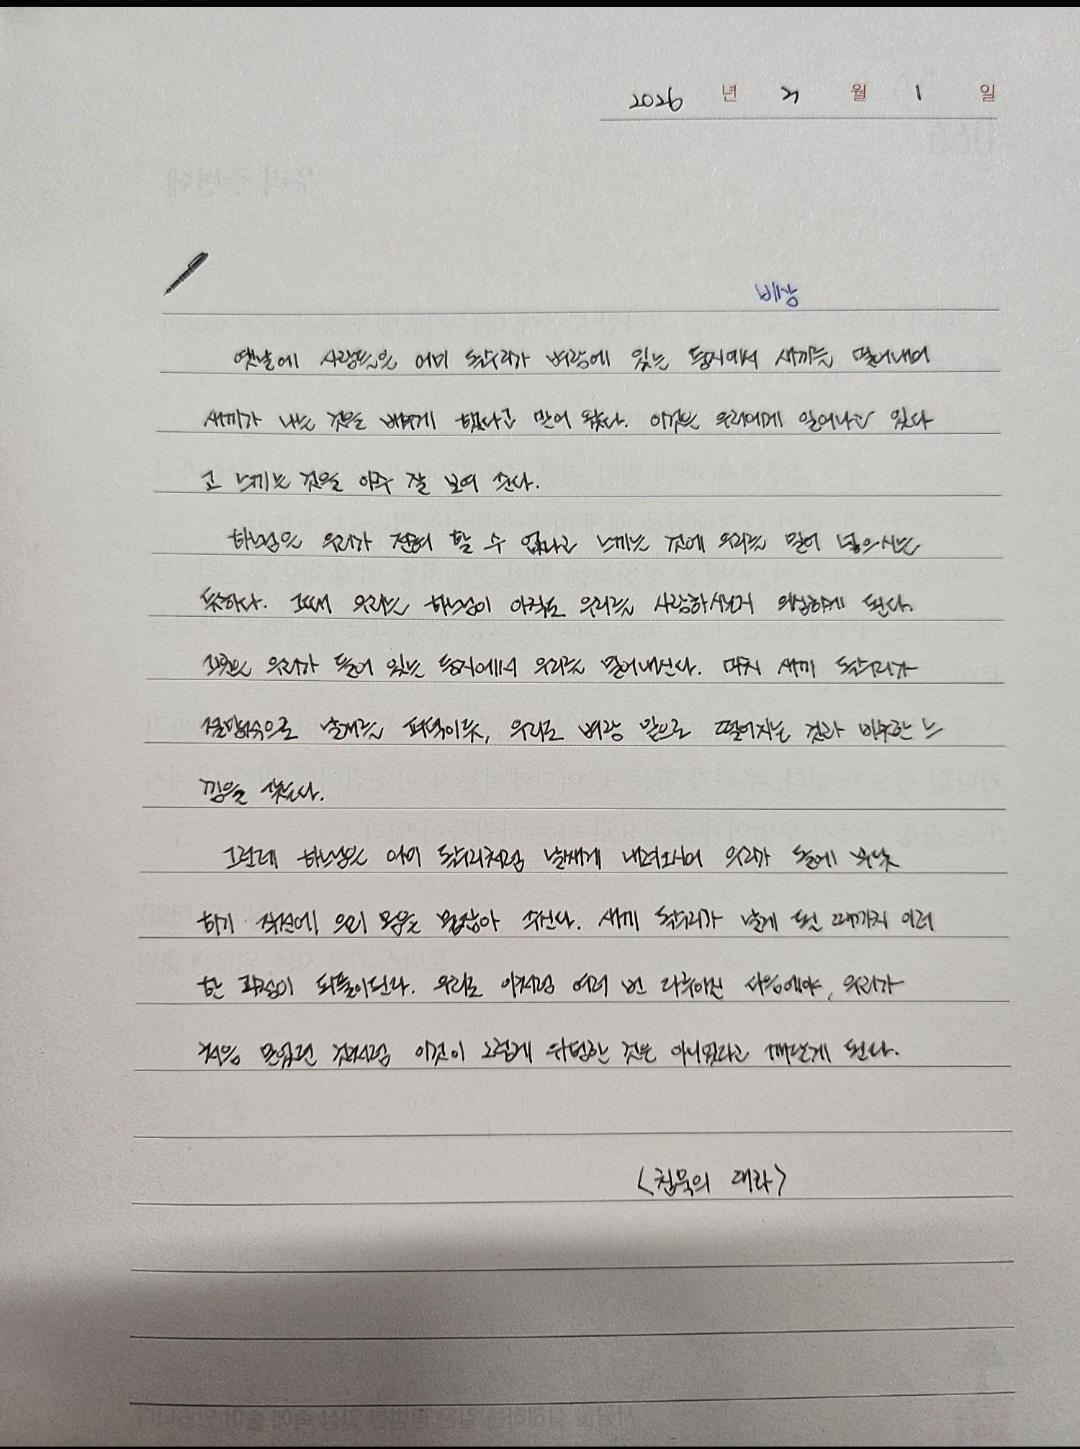 2026 년 2 월 1 일
비상
옛날에 사람들은 어미 독수리가 벼랑에 있는 둥지에서 새끼를 밀어내어
새끼가 나는 것을 배우게 했다고 믿어 왔다. 이것은 우리에게 일어나고 있다
고 느끼는 것을 아주 잘 보여 준다.
하느님은 우리가 전혀 할 수 없다고 느끼는 것에 우리를 밀어 넣으시는
듯하다. 그때 우리는 하느님이 아직도 우리를 사랑하시는지 의심하게 된다.
우리가 들어 있는 둥지에서 우리를 밀어내신다. 마치 새끼 독수리가
절망적으로 날개를 퍼덕이듯, 우리도 벼랑 밑으로 떨어지는 것과 비슷한 느
낌을 갖는다.
그런데 하느님은 어미 독수리처럼 날쌔게 내려오시어 우리가 돌에 부딪
히기 직전에 우리 몸을 붙잡아 주신다. 새끼 독수리가 날게 될 때까지 이러
한 과정이 되풀이된다. 우리도 이처럼 여러 번 다루어진 다음에야, 우리가
처음 믿었던 것처럼 이것이 그렇게 위험한 것은 아니었다고 깨닫게 된다.
<침묵의 대화>